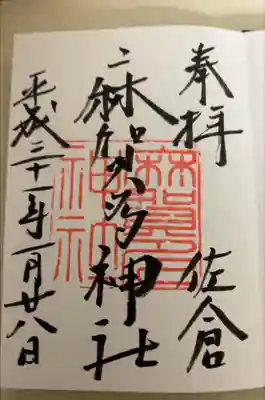 奉拝 佐倉
麻賀多神社
平成三十一年一月廿八日
麻賀多
神社